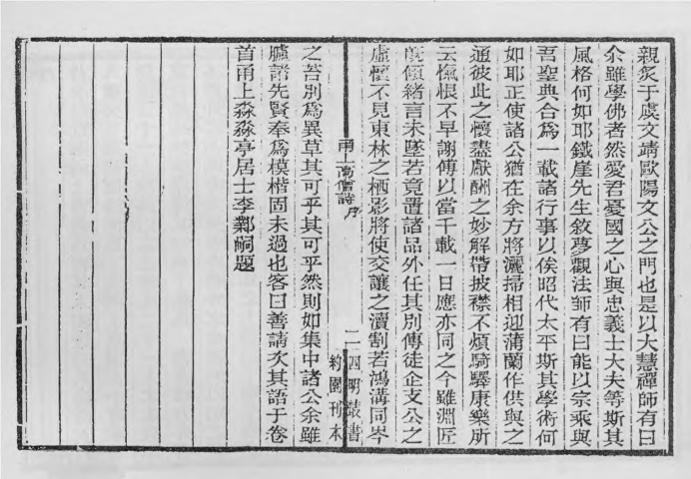 親炙于虞文靖歐陽文公之門也是以大慧禪師有曰
余雖學佛者然愛君憂國之心與忠義士大夫等斯其
風格何如耶鐵崖先生敘夢觀法師有曰能以宗乘與
吾聖典合爲一載諸行事以俟昭代太平斯其學術何
如耶正使諸公猶在余方將灑掃相迎蒲蘭作供與之
通彼此之懷盡獻酬之妙解帶披襟不煩騎驛康樂所
云愧恨不早謝傅以當千載一日應亦同之今雖淵匠
旣傾緒言未墜若竟置諸品外任其別傳徒企支公之
虛懷不見東林之栖影將使交讓之瀆割若鴻溝同岑
甬上高僧詩序
二
四明叢書
約園刊本
之苔別爲異草其可乎其可乎然則如集中諸公余雖
臚諸先賢奉爲模楷固未過也客曰善請次其語于卷
首甬上淼淼亭居士李鄴嗣題